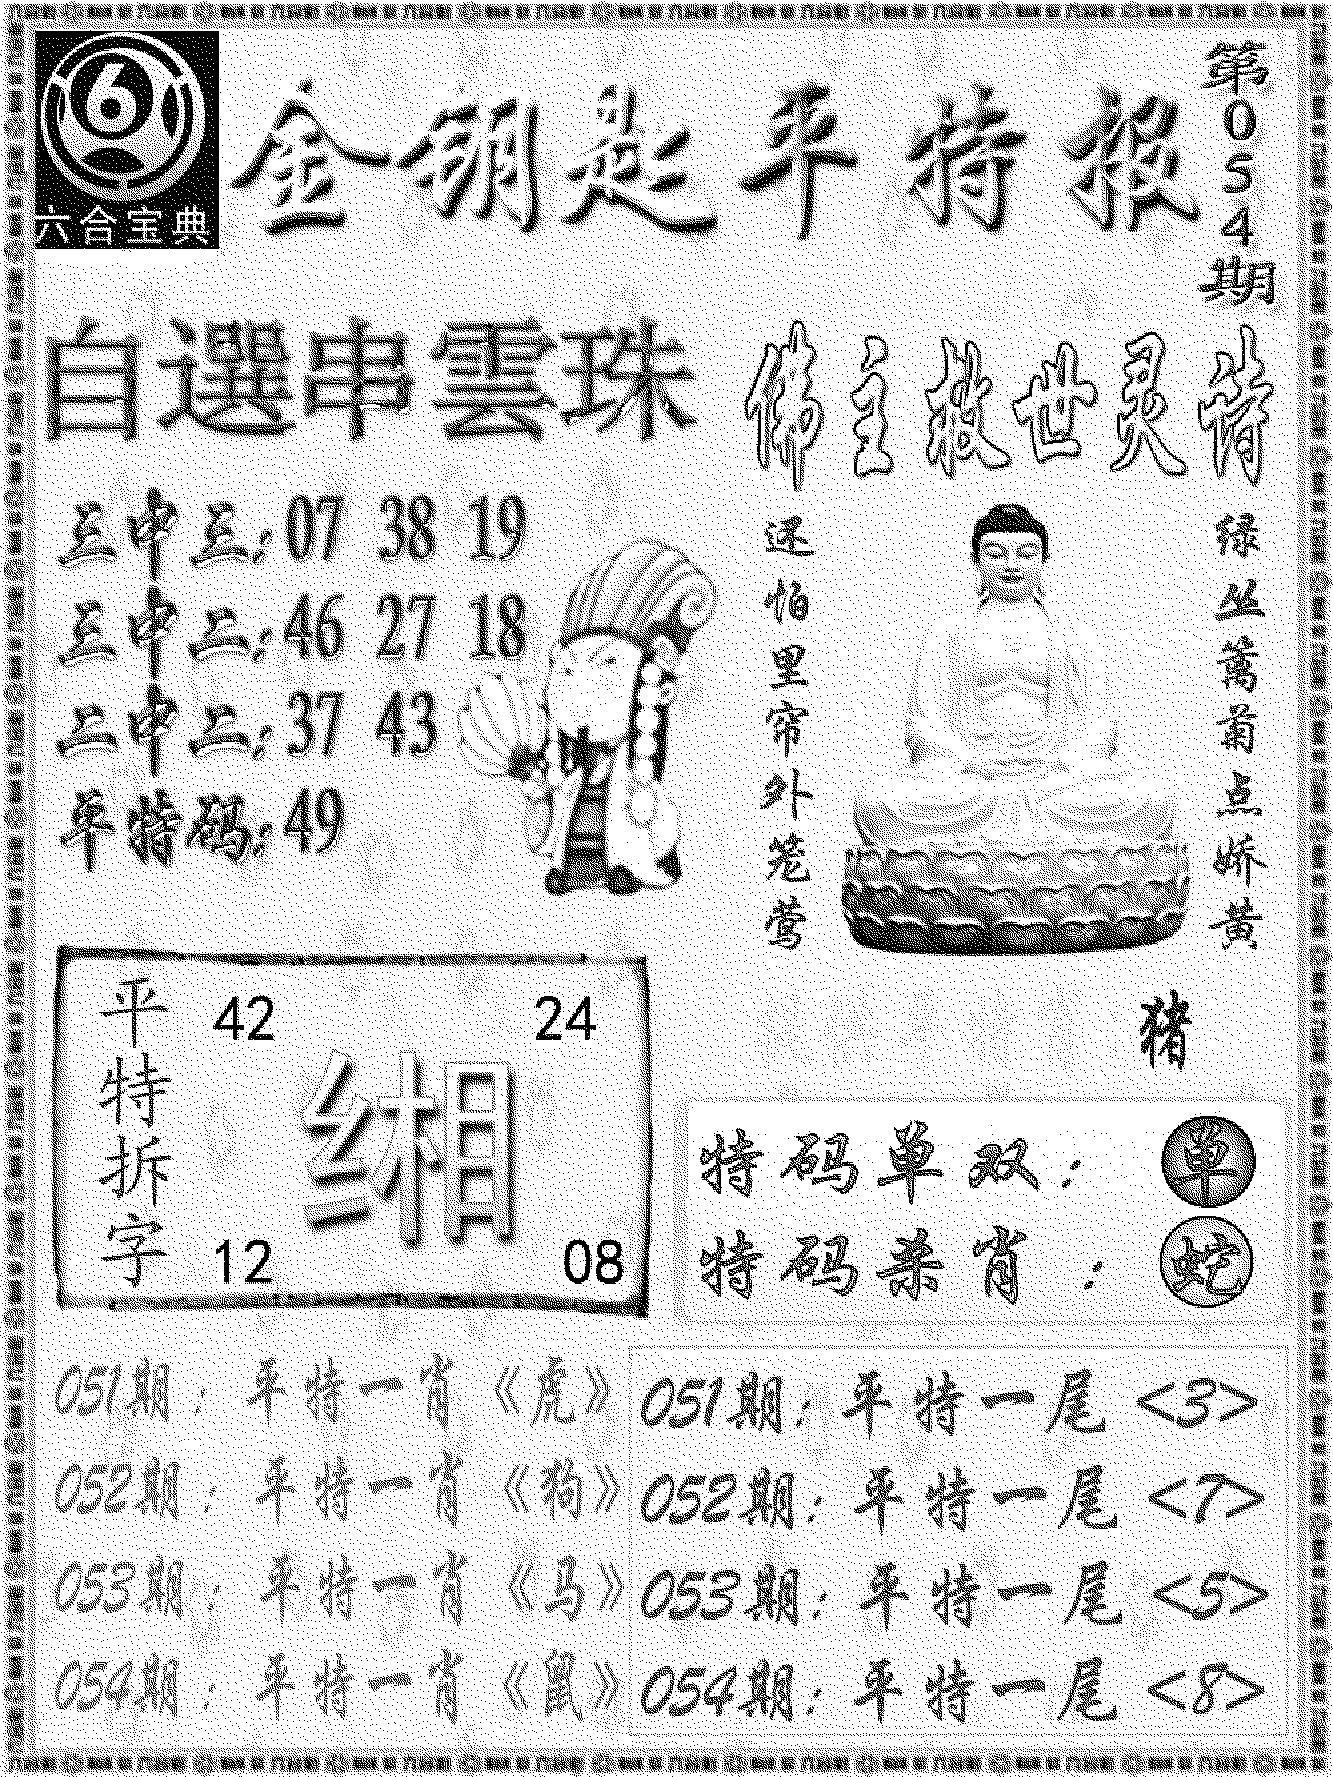 六合宝典
金钥匙平特报
第054期
自選串雲珠
三中三:07 38 19
三中二:46 27 18
二中二:37 43
平特码:49
佛主救世灵诗
绿丛萬萄点娇黄
还怕里帘外笼莺
猪
平特拆字
42 24
缃
12 08
特码单双：单
特码杀肖：蛇
051期：平特一肖《虎》
052期：平特一肖《狗》
053期：平特一肖《马》
054期：平特一肖《鼠》
051期：平特一尾<3>
052期：平特一尾<7>
053期：平特一尾<5>
054期：平特一尾<8>